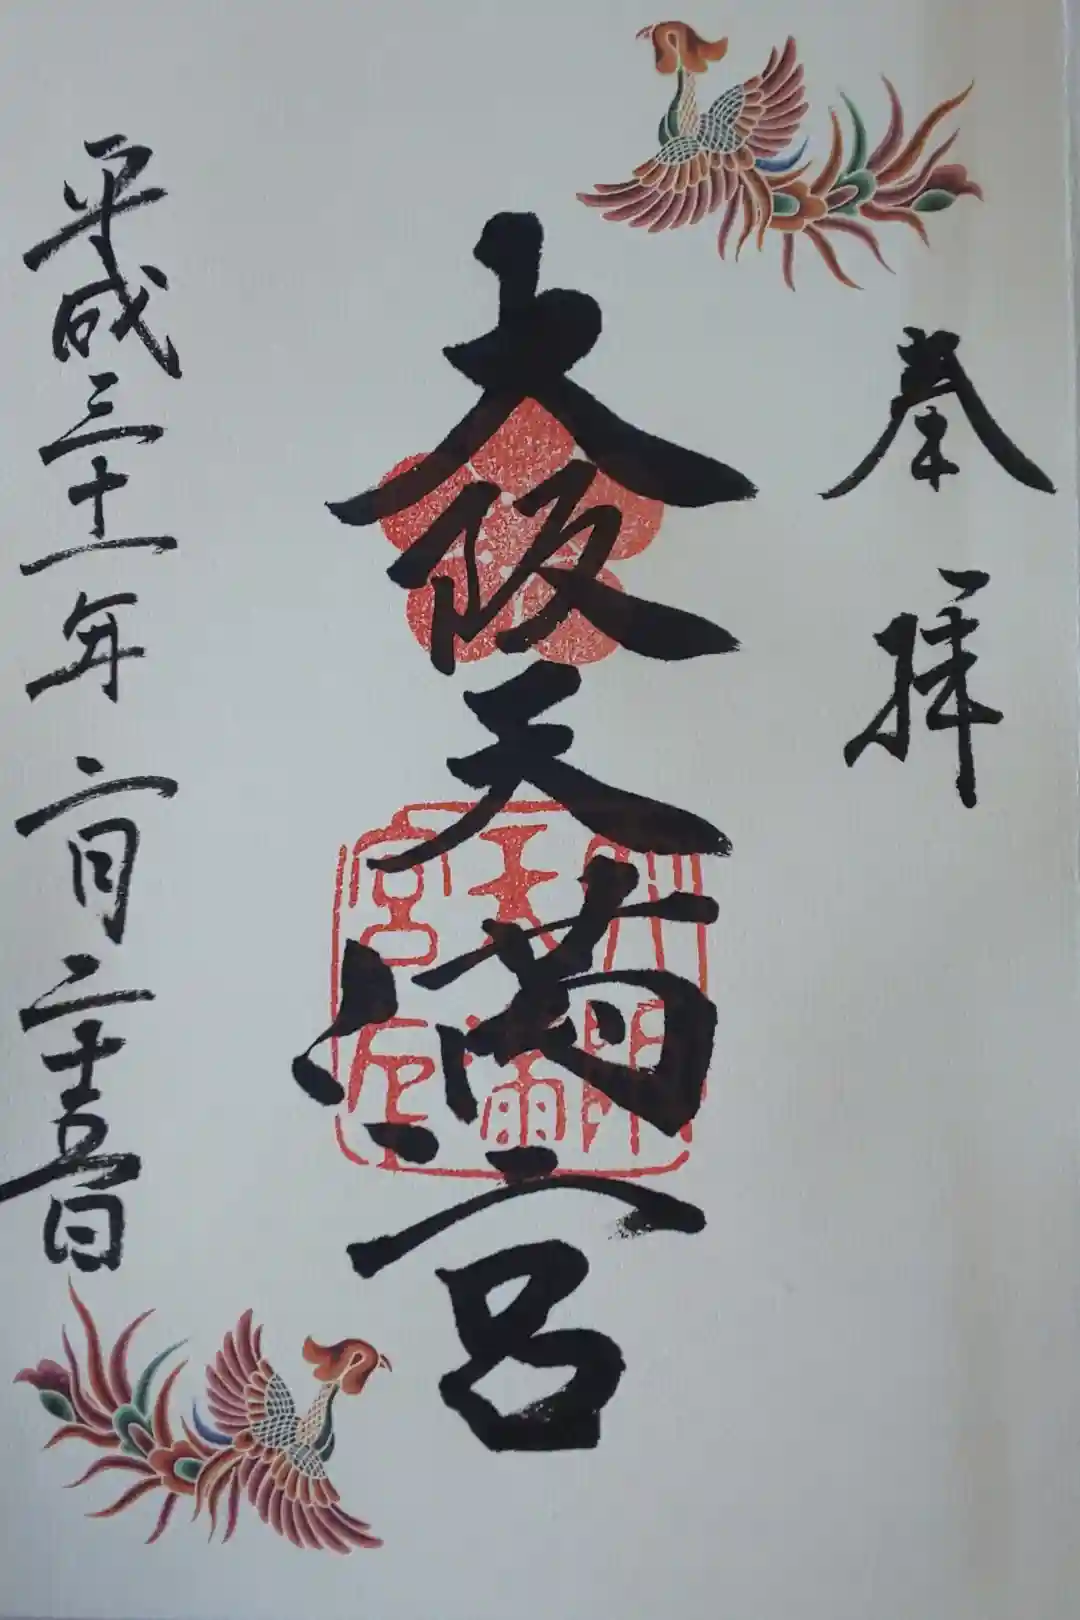 奉拝
大阪天満宮
平成三十一年二月二十五日